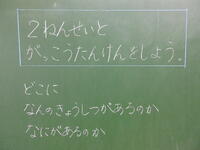 ２ねんせいと
がっこうたんけんをしよう。
どこに
なんのきょうしつがあるのか
なにがあるのか